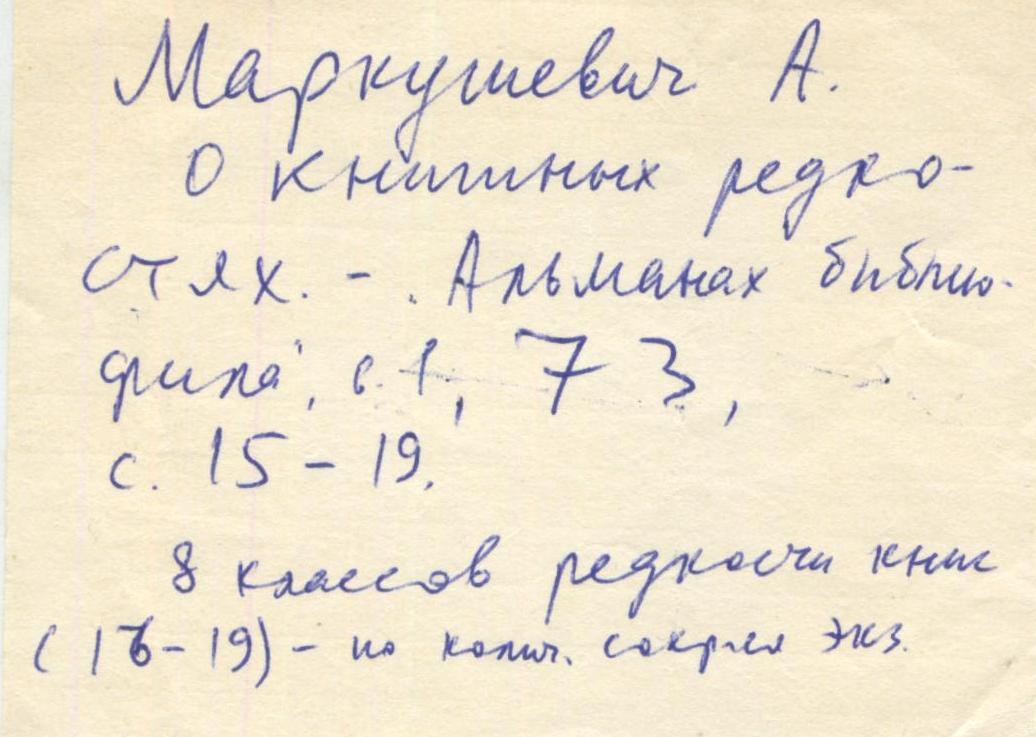 Маркушевич А.
О книжных редко-
стях. - Альманах библио-
фила, в. 1, 73,
с. 15 - 19.
8 классов редкости книг
(16 - 19) - по колич. экз.